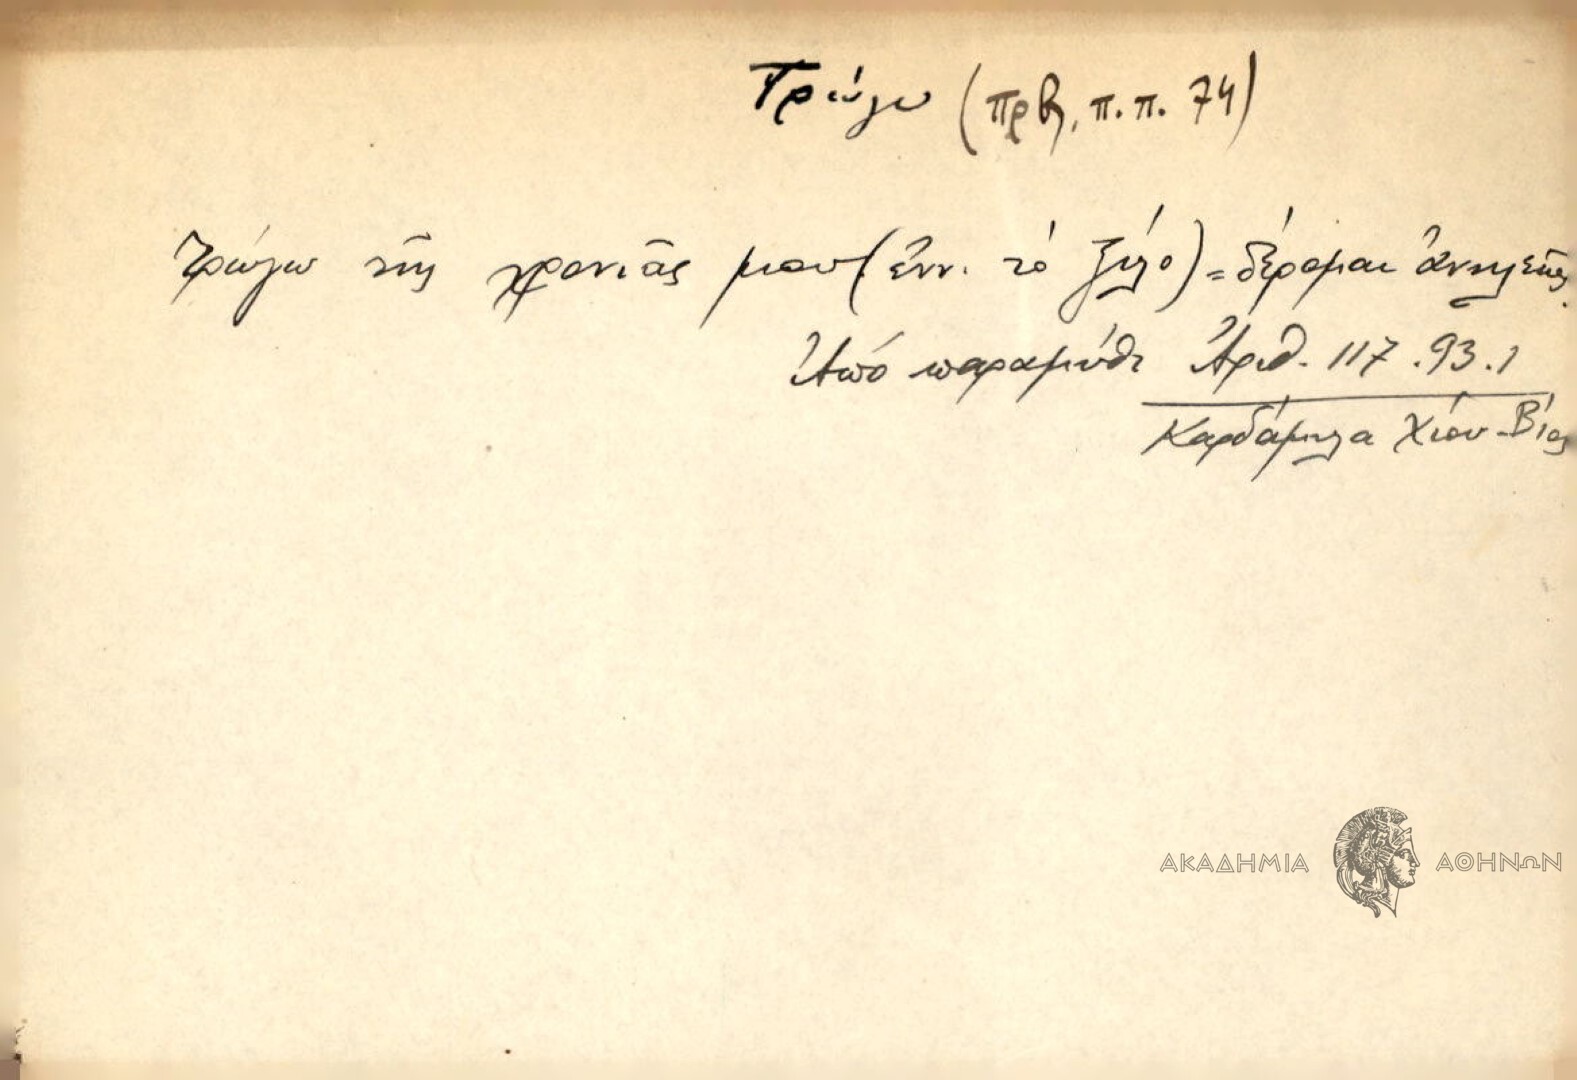 Τρώγω (πρβ, π.π. 74)
Τρώγω τῆς χρονιᾶς μου (ἐνν. τὸ ξύλο) = δέρομαι ἀνηλεῶς.
Ἀπὸ παραμύθι Ἀριθ. 117.93.1
Καρδάμυλα Χίου - Βίος
ΑΚΑΔΗΜΙΑ ΑΘΗΝΩΝ